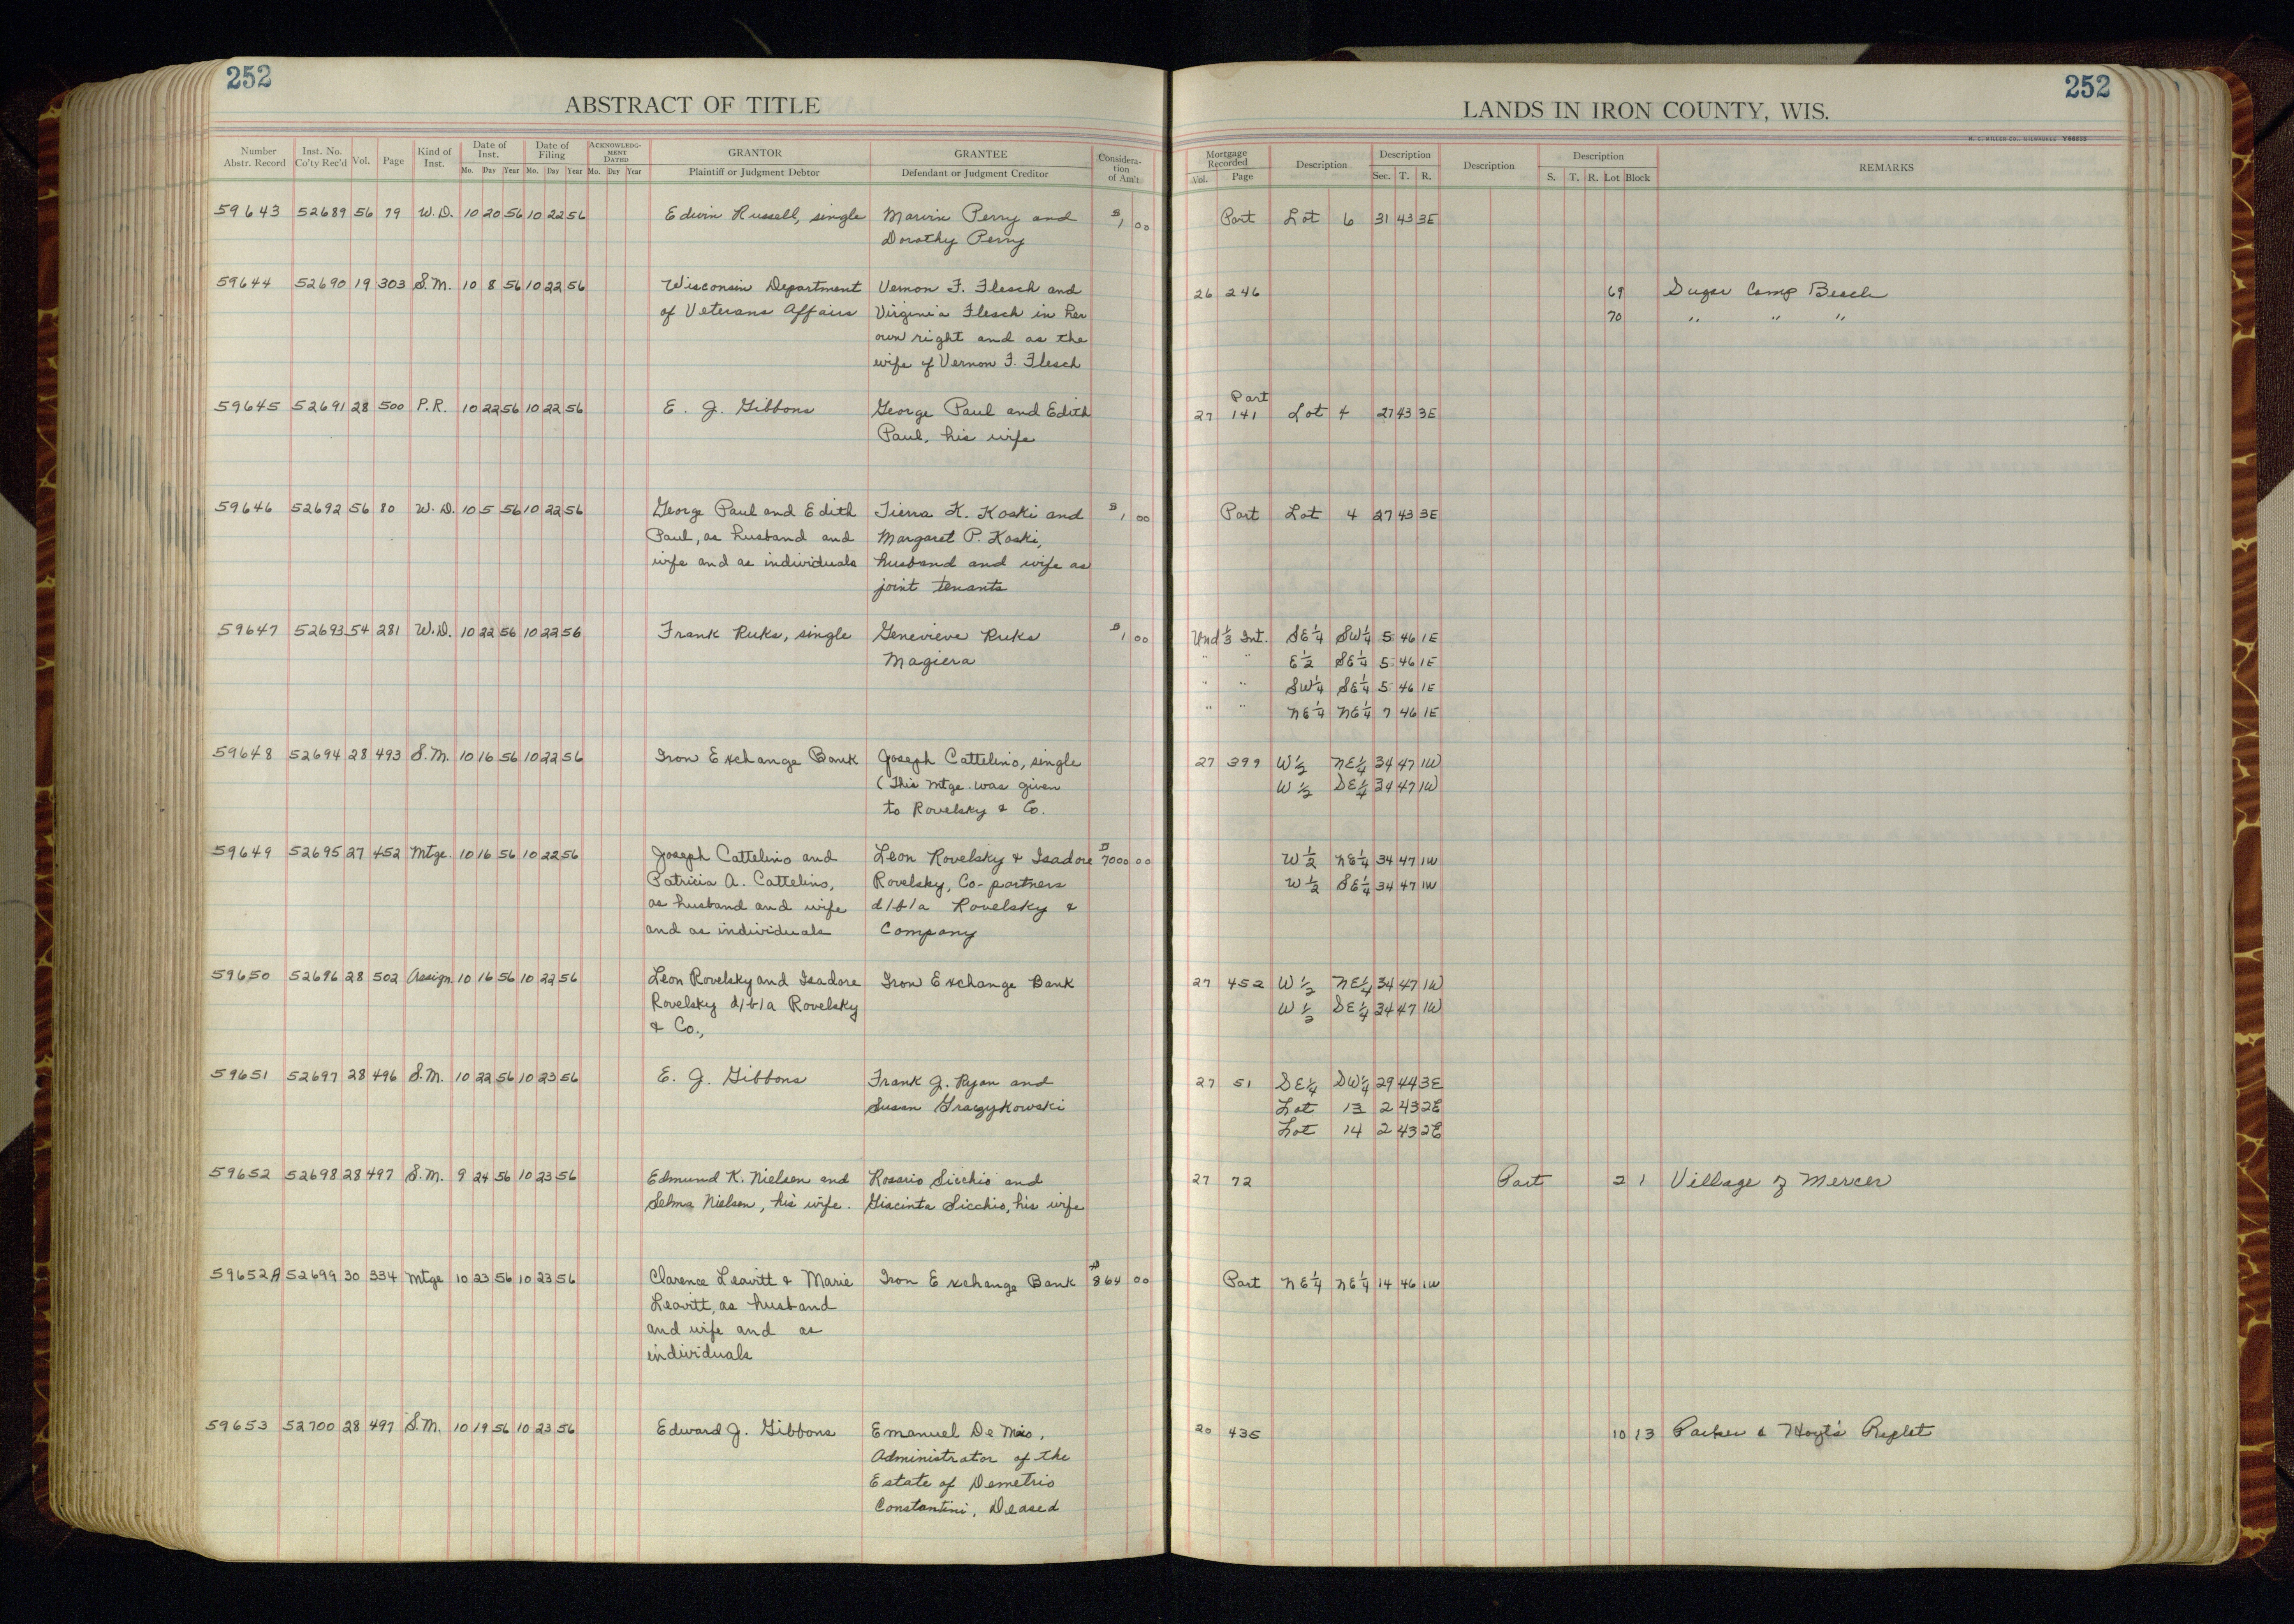 252
ABSTRACT OF TITLE
252
LANDS IN IRON COUNTY, WIS.
H. C. MILLER CO., MILWAUKEE Y68835
Number Abstr. Record
Inst. No. Co'ty Rec'd
Vol.
Page
Kind of Inst.
Date of Inst. Mo. Day Year
Date of Filing Mo. Day Year
ACKNOWLEDGMENT DATED Mo. Day Year
GRANTOR Plaintiff or Judgment Debtor
GRANTEE Defendant or Judgment Creditor
Consideration of Am't
Mortgage Recorded Vol. Page
Description
Description Sec. T. R.
Description
Description S. T. R. Lot Block
REMARKS
59643 52689 56 79 W.D. 10 20 56 10 22 56 Edwin Russell, single Marvin Perry and $1 00 Part Lot 6 31 43 3E
Dorothy Perry
59644 52690 19 303 S.M. 10 8 56 10 22 56 Wisconsin Department Vernon F. Flesch and 26 246 69 Sugar Camp Beach
of Veterans Affairs Virginia Flesch in her 70 " " "
own right and as the
wife of Vernon F. Flesch
59645 52691 28 500 P.R. 10 22 56 10 22 56 E. J. Gibbons George Paul and Edith 27 Part 141 Lot 4 27 43 3E
Paul, his wife
59646 52692 56 80 W.D. 10 5 56 10 22 56 George Paul and Edith Tierra K. Koski and $1 00 Part Lot 4 27 43 3E
Paul, as husband and Margaret P. Koski,
wife and as individuals husband and wife as
joint tenants
59647 52693 54 281 W.D. 10 22 56 10 22 56 Frank Ruks, single Genevieve Ruks $1 00 Und 1/3 Int. SE 1/4 SW 1/4 5 46 1E
Magiera " " E 1/2 SE 1/4 5 46 1E
" " SW 1/4 SE 1/4 5 46 1E
" " NE 1/4 NE 1/4 7 46 1E
59648 52694 28 493 S.M. 10 16 56 10 22 56 Iron Exchange Bank Joseph Cattelino, single 27 399 W 1/2 NE 1/4 34 47 1W
(This mtge. was given W 1/2 SE 1/4 34 47 1W
to Rovelsky & Co.
59649 52695 27 452 Mtge. 10 16 56 10 22 56 Joseph Cattelino and Leon Rovelsky & Isadore $7000 00 W 1/2 NE 1/4 34 47 1W
Patricia A. Cattelino, Rovelsky, Co-partners W 1/2 SE 1/4 34 47 1W
as husband and wife d/b/a Rovelsky &
and as individuals Company
59650 52696 28 502 Assign. 10 16 56 10 22 56 Leon Rovelsky and Isadore Iron Exchange Bank 27 452 W 1/2 NE 1/4 34 47 1W
Rovelsky d/b/a Rovelsky W 1/2 SE 1/4 34 47 1W
& Co.,
59651 52697 28 496 S.M. 10 22 56 10 23 56 E. J. Gibbons Frank J. Ryan and 27 51 SE 1/4 SW 1/4 29 44 3E
Susan Graczykowski Lot 13 2 43 2E
Lot 14 2 43 2E
59652 52698 28 497 S.M. 9 24 56 10 23 56 Edmund K. Nielsen and Rosario Sicchio and 27 72 Part 2 1 Village of Mercer
Selma Nielsen, his wife. Giacinta Sicchio, his wife
59652A 52699 30 334 Mtge 10 23 56 10 23 56 Clarence Leavitt & Marie Iron Exchange Bank $864 00 Part NE 1/4 NE 1/4 14 46 1W
Leavitt, as husband
and wife and as
individuals
59653 52700 28 497 S.M. 10 19 56 10 23 56 Edward J. Gibbons Emanuel De Meio, 20 435 10 13 Parker & Hoyt's Replat
Administrator of the
Estate of Demetrio
Constantini, Deased